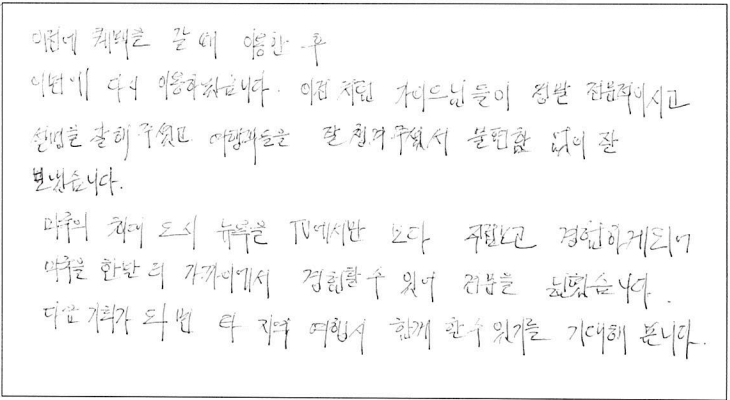 이전에 퀘벡을 갈 때 이용한 후
이번에 다시 이용하였습니다. 이전 처럼 가이드님들이 정말 전문적이시고
설명을 잘해 주셨고 여행객들을 잘 챙겨주셔서 불편함 없이 잘
보냈습니다.
미국의 최대 도시 뉴욕을 TV에서만 보다 직접보고 경험하게되어
미국을 한발 더 가까이에서 경험할 수 있어 견문을 넓혔습니다.
다음 기회가 되면 타 지역 여행시 함께 할 수 있기를 기대해 봅니다.